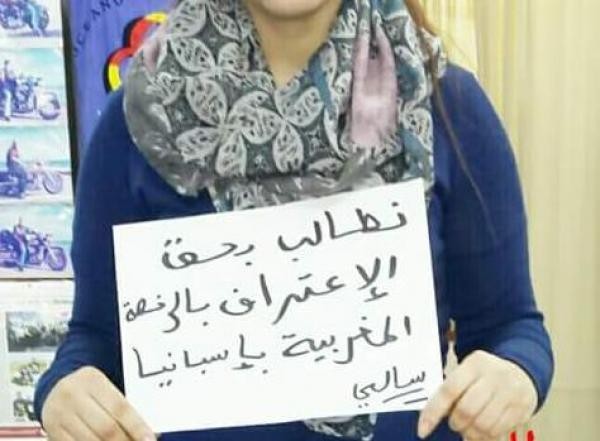 نطالب بحق
الإعتراف بالرخصة
المغربية بإسبانيا
سالمي